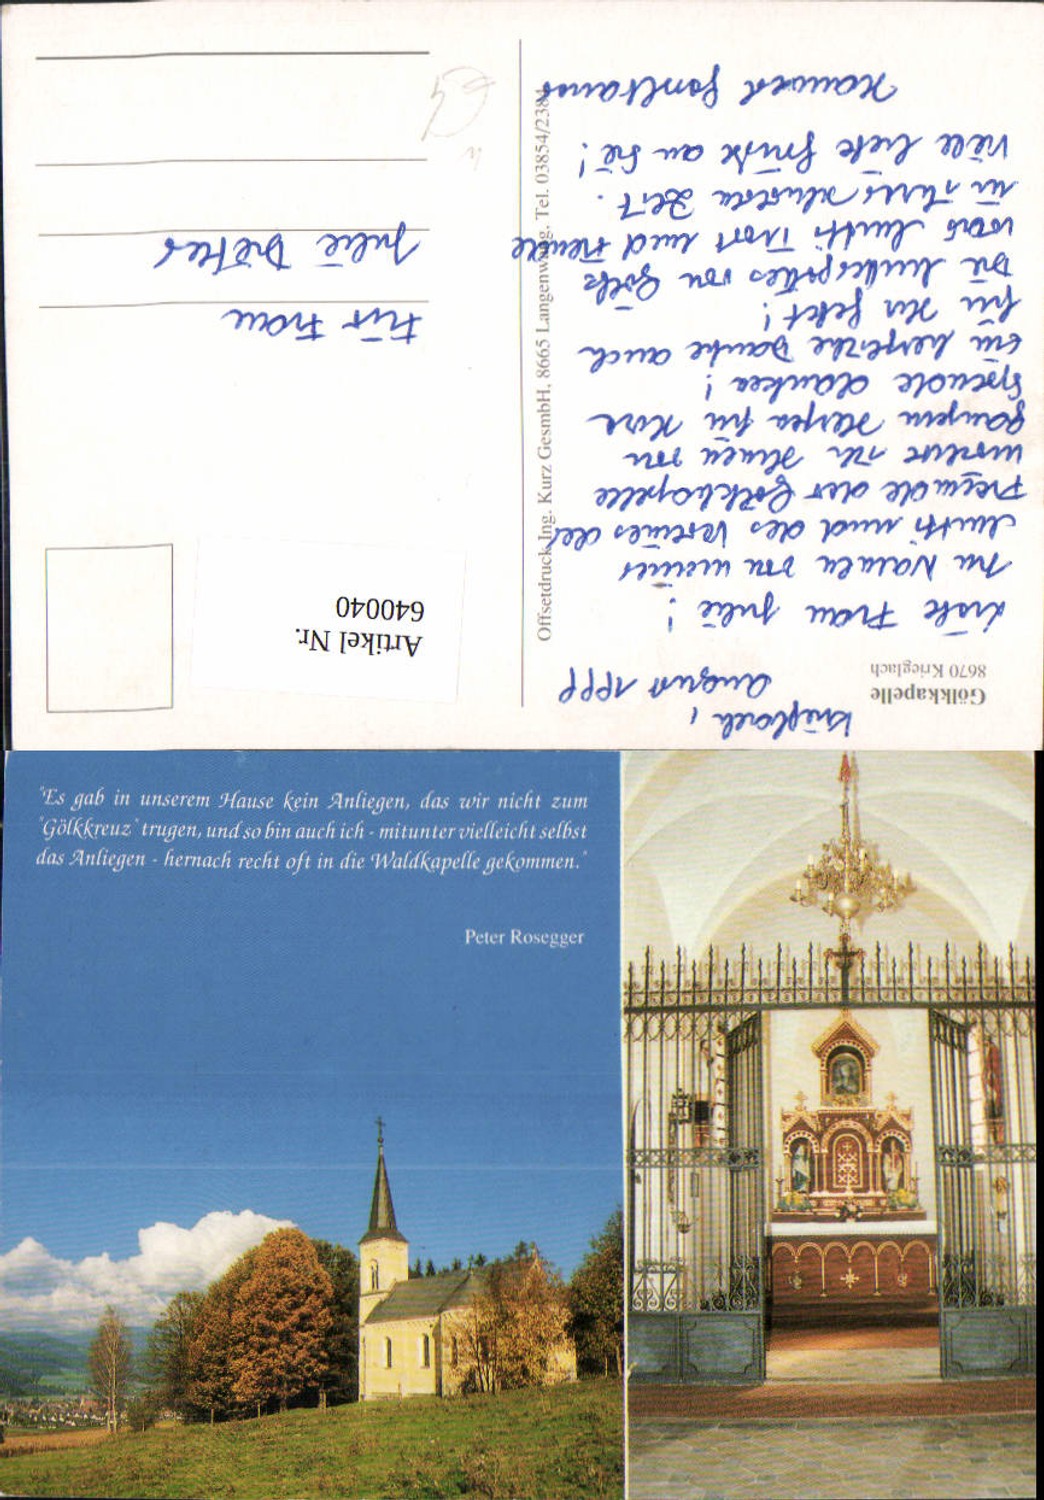 Gölkkapelle
8670 Krieglach
Krieglach,
August 1999
Liebe Frau Julie!
Im Namen von meiner
Mutti und des Vereines der
Freunde der Gölkkapelle
möchte ich Ihnen von
ganzem Herzen für Ihre
Spende danken!
Ein herzliche Danke auch
für Ihr Gebet!
Die Muttergottes von Gölk
war Mutti Trost und Freude
in ihrer schweren Zeit.
Viele liebe Grüße an Sie!
Offsetdruck Ing. Kurz GesmbH, 8665 Langenwang, Tel. 03854/2384
Artikel Nr.
640040
Für Frau
Julie
"Es gab in unserem Hause kein Anliegen, das wir nicht zum
"Gölkkreuz" trugen, und so bin auch ich - mitunter vielleicht selbst
das Anliegen - hernach recht oft in die Waldkapelle gekommen."
Peter Rosegger